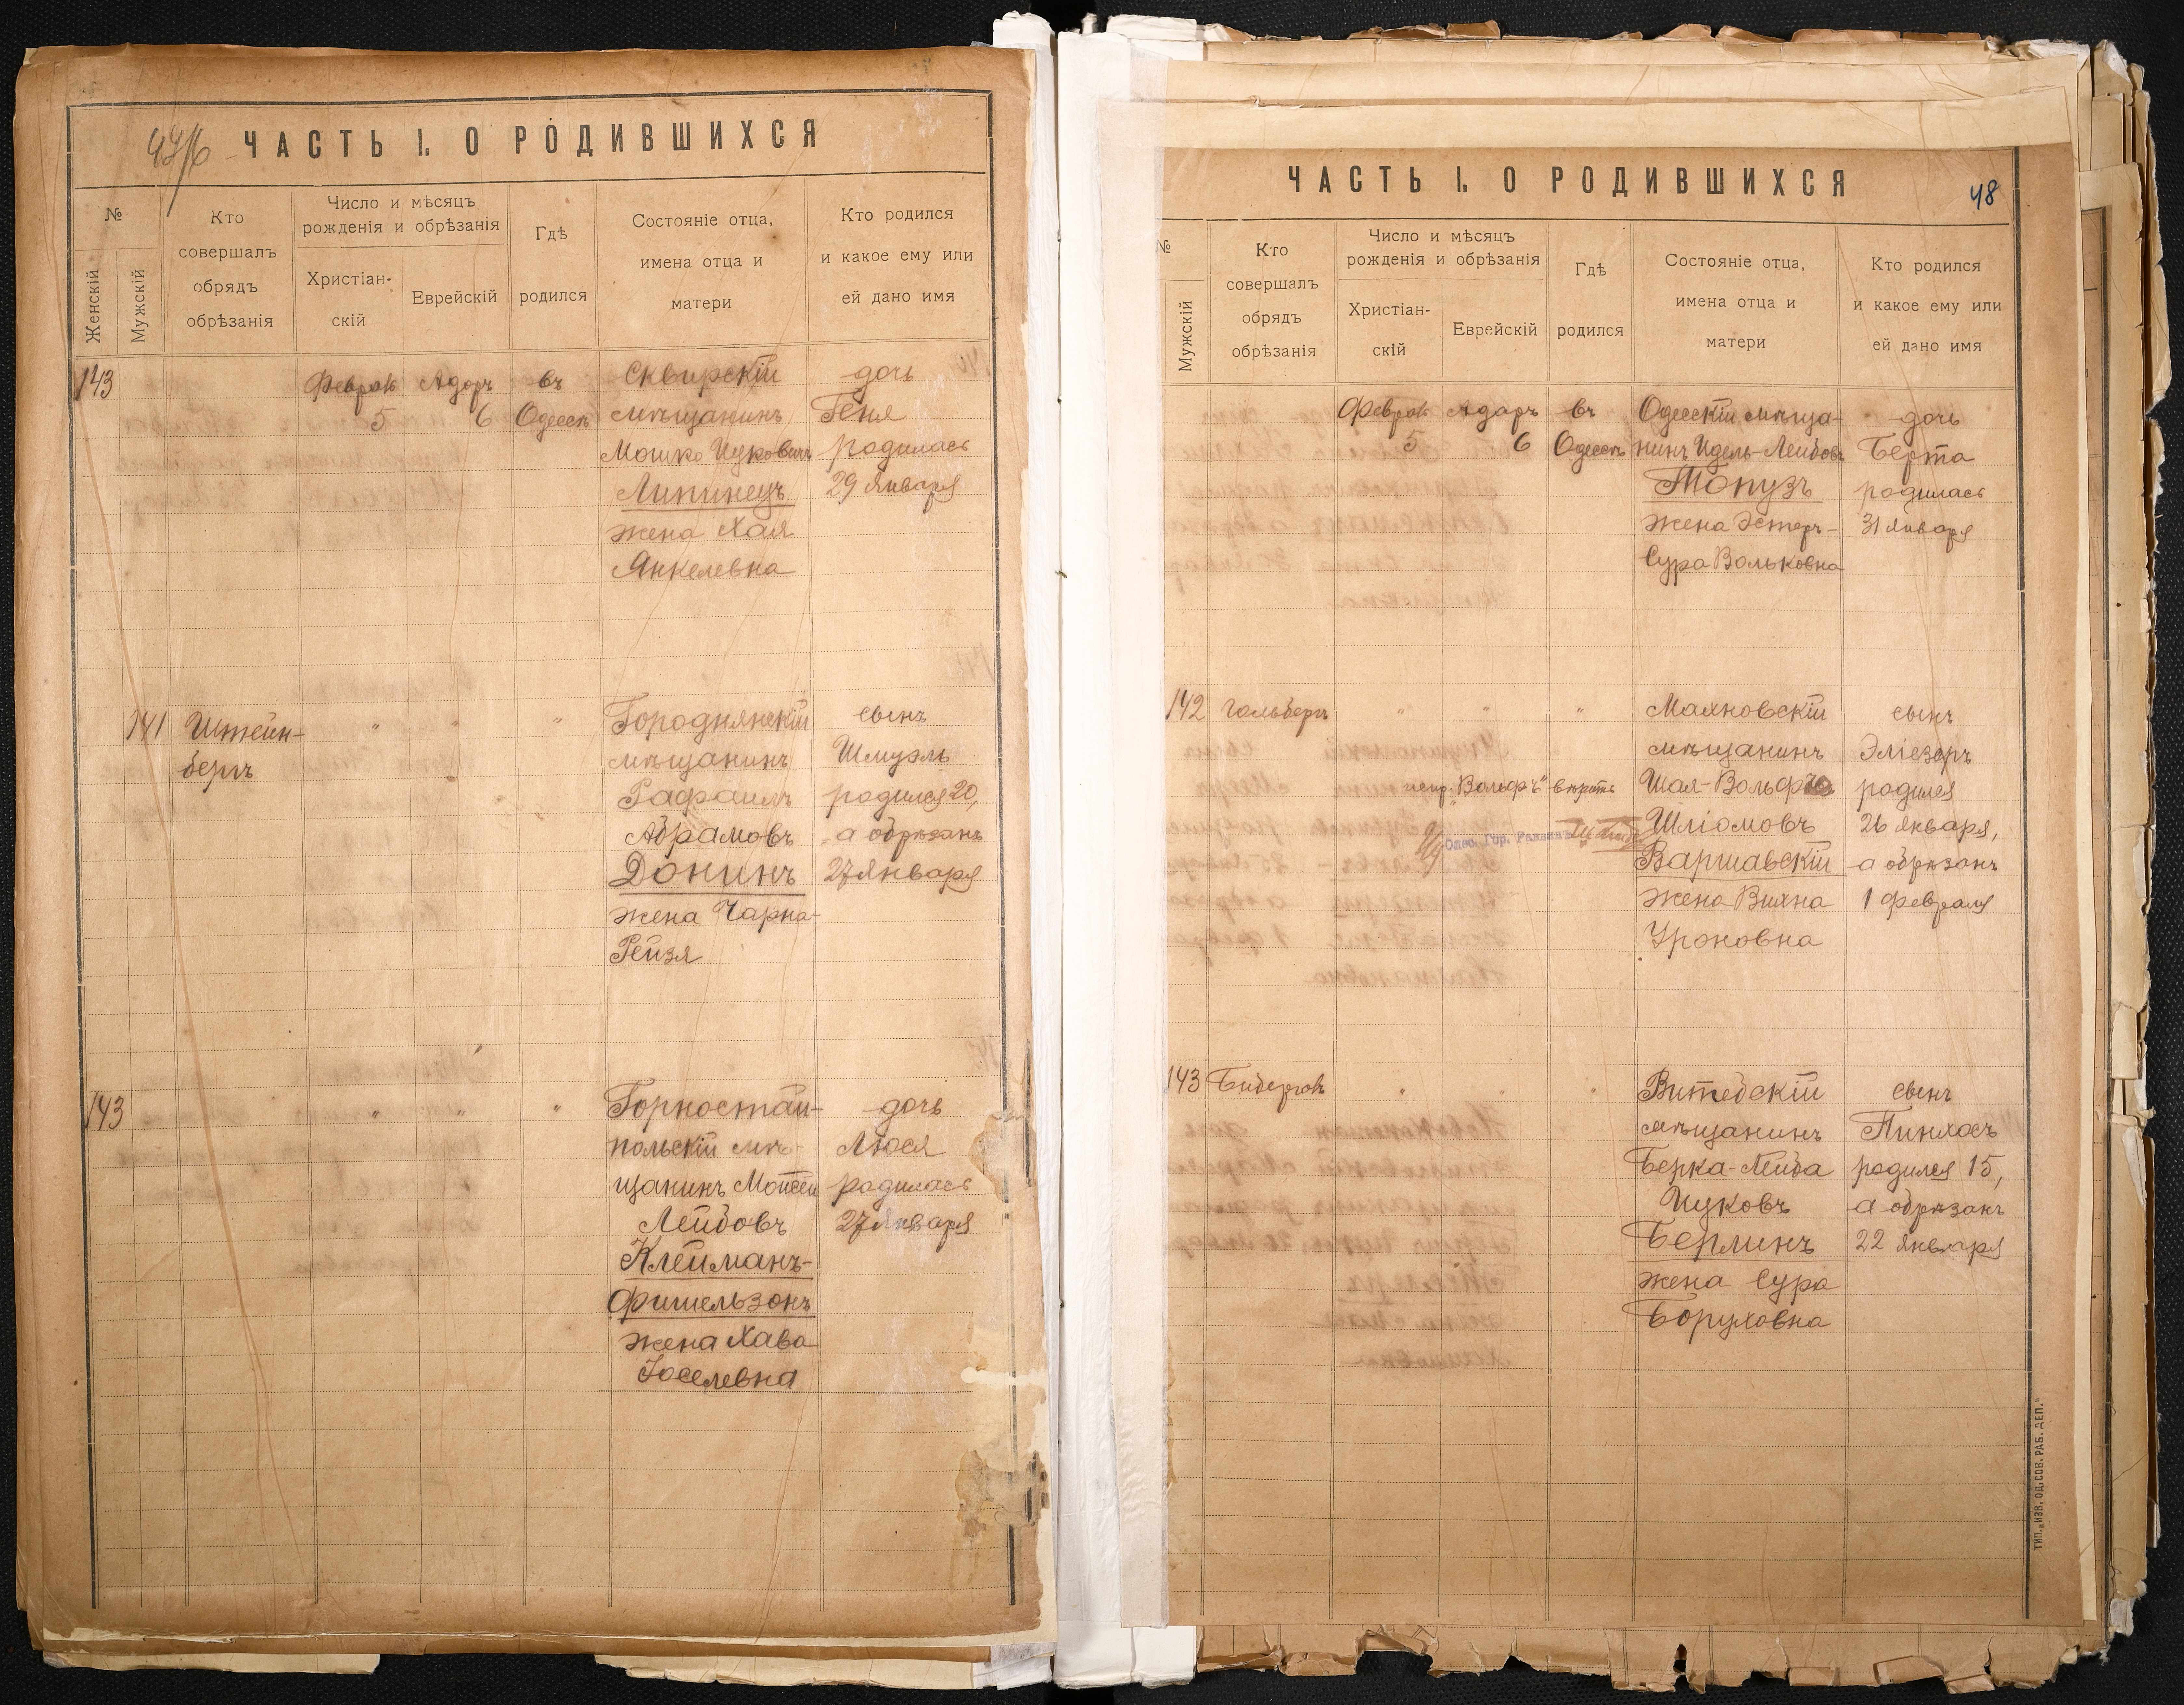 ЧАСТЬ I. О РОДИВШИХСЯ
№
Женскій
Мужскій
Кто
совершалъ
обрядъ
обрѣзанія
Число и мѣсяцъ
рожденія и обрѣзанія
Христіан-
скій
Еврейскій
Гдѣ
родился
Состояніе отца,
имена отца и
матери
Кто родился
и какое ему или
ей дано имя
143
Феврал
5
Адаръ
6
въ
Одессѣ
Сквирскій
мѣщанинъ
Мошко Ицковичъ
Липинецъ
жена Хая
Янкелевна
дочь
Геня
родилась
29 января
141
Штейн-
бергъ
" " "
Городнянскій
мѣщанинъ
Рафаилъ
Абрамовъ
Донинъ
жена Чарна-
Рейзя
сынъ
Шмуэль
родился 20,
а обрѣзанъ
27 января
143
" " "
Горностай-
польскій мѣ-
щанинъ Мойсей
Лейбовъ
Клейманъ-
Фишельзонъ
жена Хава
Іоселевна
дочь
Люся
родилась
27 января
ЧАСТЬ I. О РОДИВШИХСЯ
48
№
Мужскій
Кто
совершалъ
обрядъ
обрѣзанія
Число и мѣсяцъ
рожденія и обрѣзанія
Христіан-
скій
Еврейскій
Гдѣ
родился
Состояніе отца,
имена отца и
матери
Кто родился
и какое ему или
ей дано имя
Феврал
5
Адаръ
6
въ
Одессѣ
Одесскій мѣща-
нинъ Идель-Лейбовъ
Топузъ
жена Эстеръ-
Сура Вольковна
дочь
Берта
родилась
31 января
142
Гольбергъ
" " "
испр. "Вольфъ" вѣрить
Одес. Гор. Раввинъ
Маяновскій
мѣщанинъ
Шая-Вольфъ
Шліомовъ
Варшавскій
жена Вихна
Ароновна
сынъ
Эліезеръ
родился
26 января,
а обрѣзанъ
1 февраля
143
" " "
Витебскій
мѣщанинъ
Берка-Лейба
Ицковъ
Берлинъ
жена Сура
Боруховна
сынъ
Пинхосъ
родился 15,
а обрѣзанъ
22 января
ТИП. „ИЗВ. ОД. СОВ. РАБ. ДЕП."